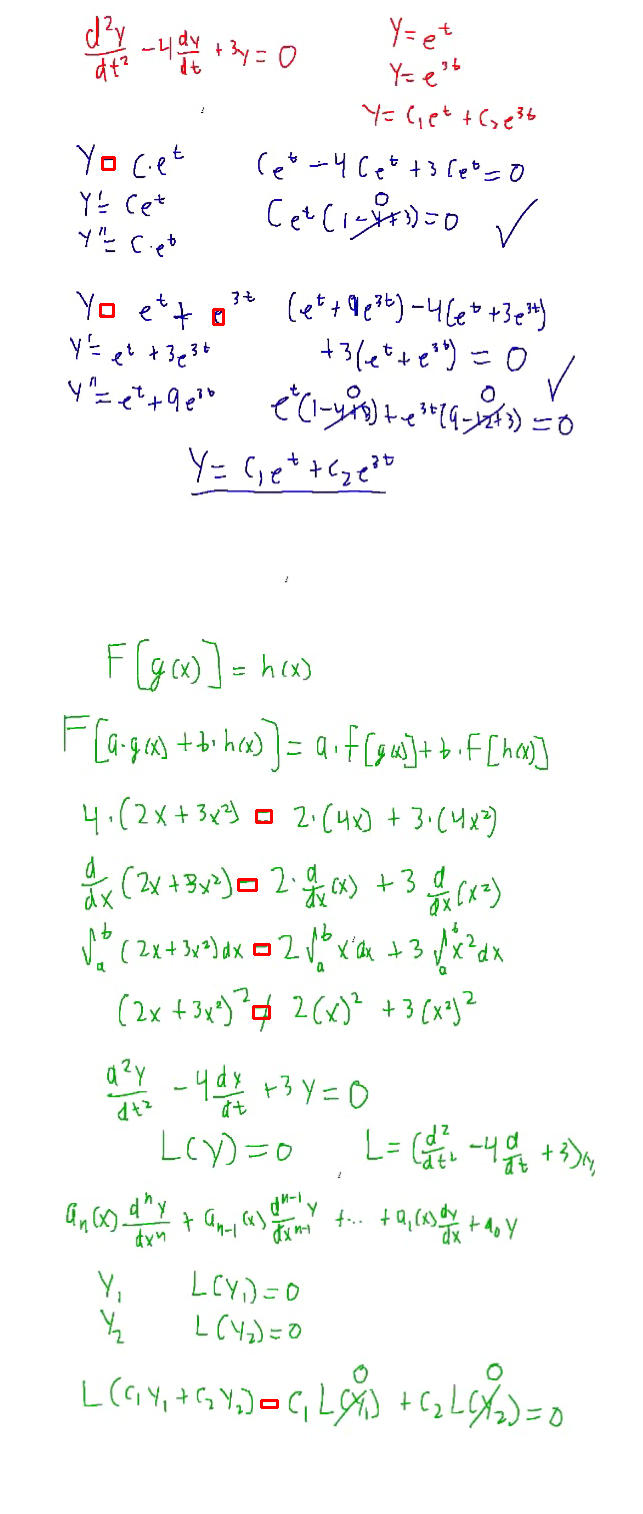 d²y/dt² - 4 dy/dt + 3y = 0
y = e^t
y = e^3t
y = c₁e^t + c₂e^3t
y = c·e^t
ce^t - 4ce^t + 3ce^t = 0
y' = ce^t
ce^t(1-4+3) = 0 ✓
y'' = c·e^t
y = e^t + e^3t
(e^t + 9e^3t) - 4(e^t + 3e^3t)
y' = e^t + 3e^3t
+3(e^t + e^3t) = 0 ✓
y'' = e^t + 9e^3t
e^t(1-4+3) + e^3t(9-12+3) = 0
y = c₁e^t + c₂e^3t
F[g(x)] = h(x)
F[a·g(x) + b·h(x)] = a·F[g(x)] + b·F[h(x)]
4·(2x + 3x²) = 2·(4x) + 3·(4x²)
d/dx (2x + 3x²) = 2·d/dx(x) + 3 d/dx(x²)
∫_a^b (2x + 3x²)dx = 2∫_a^b x dx + 3∫_a^b x²dx
(2x + 3x²)² ≠ 2(x)² + 3(x²)²
d²y/dt² - 4 dy/dt + 3y = 0
L(y) = 0 L = (d²/dt² - 4 d/dt + 3)y
aₙ(x) dⁿy/dxⁿ + aₙ₋₁(x) dⁿ⁻¹y/dxⁿ⁻¹ + ... + a₁(x) dy/dx + a₀y
y₁ L(y₁) = 0
y₂ L(y₂) = 0
L(c₁y₁ + c₂y₂) = c₁L(y₁) + c₂L(y₂) = 0